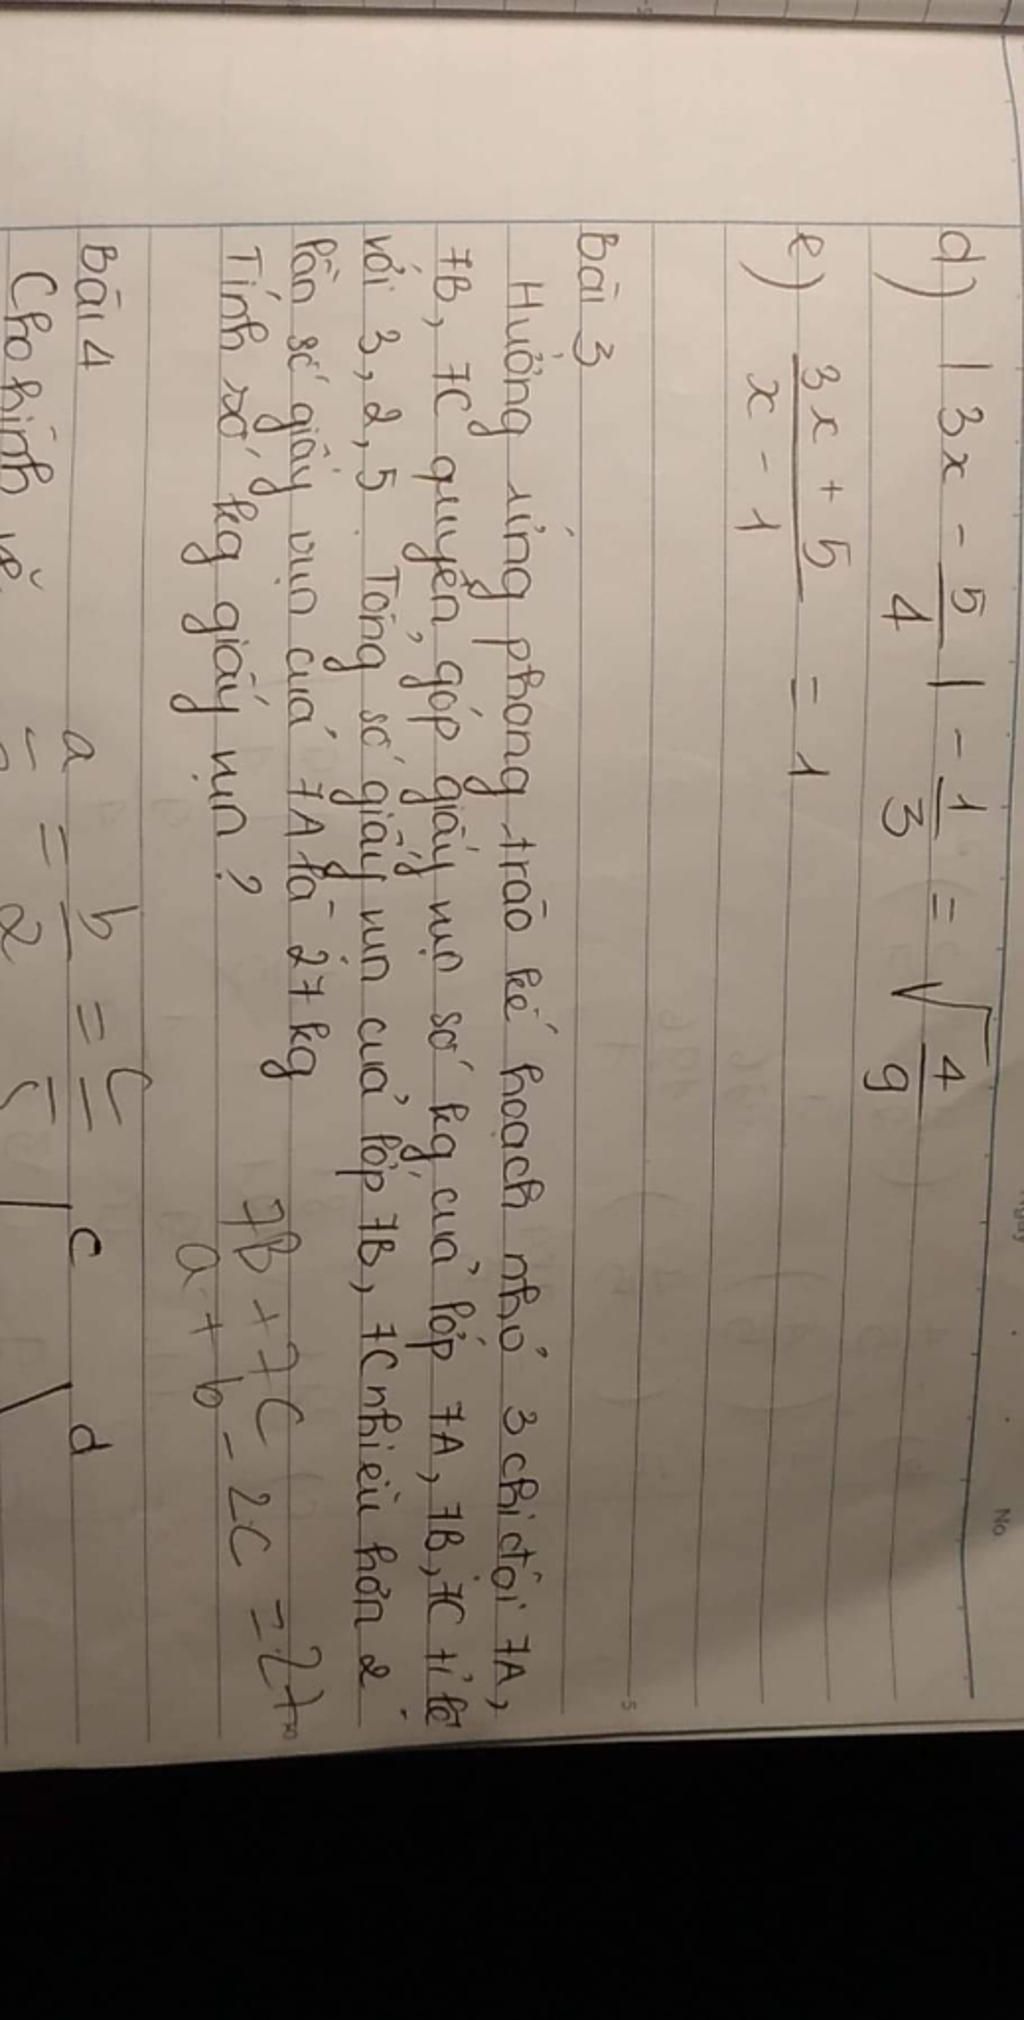 No.
d) | 3x - 5/4 | - 1/3 = √4/9
e) 3x + 5 / x - 1 = 1
Bài 3
Hưởng ứng phong trào kế hoạch nhỏ 3 chi đội 7A,
7B, 7C quyên góp giấy vụn số kg của lớp 7A, 7B, 7C tỉ lệ
với 3, 2, 5. Tổng số giấy vụn của lớp 7B, 7C nhiều hơn 2
lần số giấy vụn của 7A là 27 kg
Tính số kg giấy vụn?
7B + 7C
a + b - 2C = 27
Bài 4
a = b = c
2
c d
Cho hình vẽ